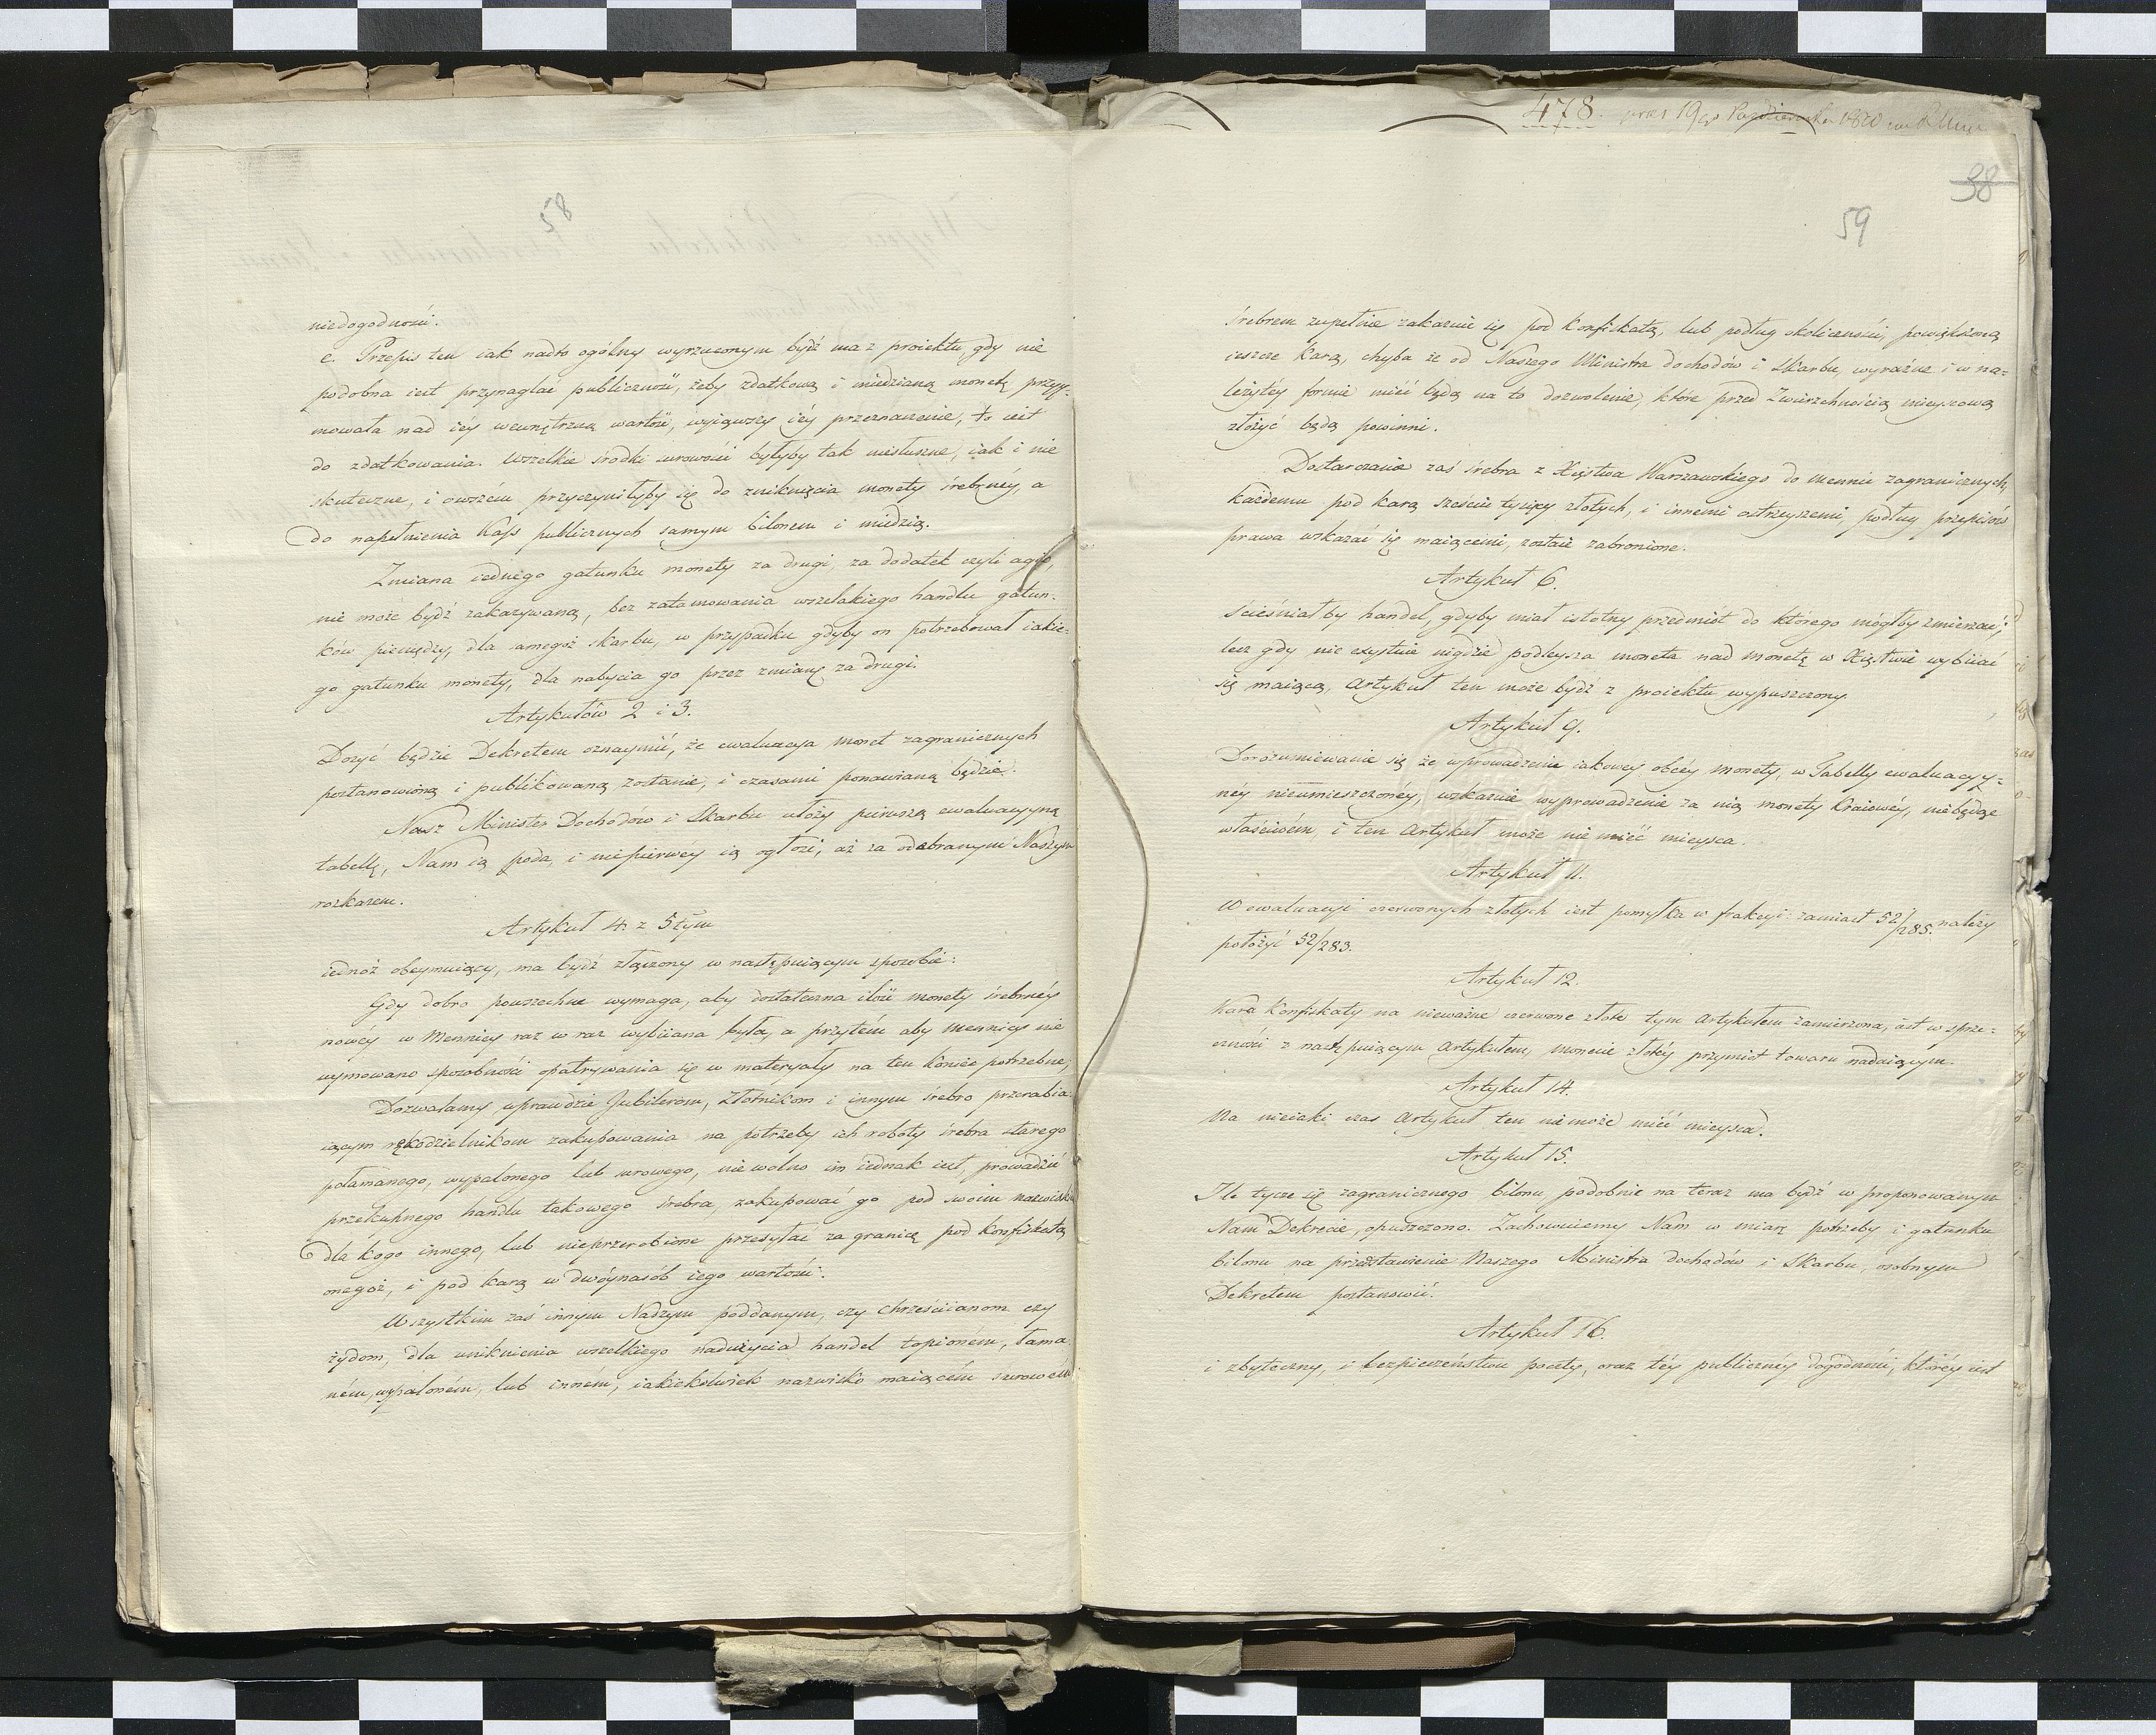 58
niedogodności.
e. Przepis ten iak nadto ogólny wyrzuconym bydź ma z proiektu, gdy nie
podobna iest przynaglać publiczność, żeby zdatkową i miedzianą monetę przyy-
mowała nad iey wewnętrzną wartość, wyiąwszy iéy przeznaczenie, to iest
do zdatkowania. Wszelkie środki surowości byłyby tak niesłuszne, iak i nie
skuteczne, i owszém przyczyniłyby się do zniknięcia monety śrebrnéy, a
do napełnienia Kass publicznych samym bilonem i miedzią.
Zmiana iednego gatunku monety za drugi, za dodatek czyli agio,
nie może bydź zakazywaną, bez zatamowania wszelakiego handlu gatun-
ków pieniędzy, dla samegoż skarbu, w przypadku gdyby on potrzebował iakie-
go gatunku monety, dla nabycia go przez zmianę za drugi.
Artykułów 2 i 3.
Dosyć będzie Dekretem oznaymić, że ewaluacya monet zagranicznych
postanowioną i publikowaną zostanie, i czasami ponawianą będzie.
Nasz Minister Dochodów i Skarbu ułoży pierwszą ewaluacyyną
tabellę, Nam ią poda, i niepierwey ią ogłosi, aż za odebranym Naszym
rozkazem.
Artykuł 4. z 5tym
iednoż obeymuiący, ma bydź złączony w następuiącym sposobie:
Gdy dobro powszechne wymaga, aby dostateczna ilość monety śrebrnéy
nowéy w Mennicy raz w raz wybiiana była, a przytém aby mennicy nie
uymowano sposobności opatrywania się w materyały na ten koniec potrzebne,
Dozwalamy wprawdzie Jubilerom, Złotnikom i innym śrebro przerabia-
iącym rękodzielnikom zakupowania na potrzeby ich roboty śrebra starego
połamanego, wypalonego lub surowego, nie wolno im iednak iest, prowadzić
przekupnego handlu takowego śrebra, zakupować go pod swoim nazwiskiem
dla kogo innego, lub nieprzerobione przesyłać za granicę pod konfiskatą
onegoż, i pod karą w dwóynasób iego wartości.
Wszystkim zaś innym Naszym poddanym, czy chrześciianom czy
żydom, dla uniknienia wszelkiego nadużycia handel topioném, łama-
ném, wypaloném, lub inném, iakiekolwiek nazwisko maiącém surowém
478. praes 19 Października 1820
38
59
śrebrem zupełnie zakazuie się pod konfiskatą, lub podług okoliczności, powiększoną
ieszcze karą, chyba że od Naszego Ministra dochodów i Skarbu, wyraźne i w na-
leżytéy formie mieć będą na to dozwolenie, które przed Zwierzchnością mieyscową
złożyć będą powinni.
Dostarczanie zaś śrebra z Xięstwa Warszawskiego do mennic zagranicznych,
każdemu pod karą sześciu tysięcy złotych, i innemi ostrzeyszemi, podług przepisów
prawa wskazać się maiącemi, zostaie zabronione.
Artykuł 6.
ścieśniałby handel, gdyby miał istotny przedmiót do którego mógłby zmierzać;
lecz gdy nie exystuie nigdzie podleysza moneta nad monetę w Xięstwie wybiiać
się maiącą, Artykuł ten może bydź z proiektu wypuszczony.
Artykuł 9.
Dorozumiewanie się że wprowadzenie iakowey obcéy monety, w Tabelly ewaluacyy-
néy nieumieszczonéy, wskazuie wyprowadzenie za nią monety Kraiowéy, niebędąc
właściwém, i ten Artykuł może nie mieć mieysca.
Artykuł 11.
W ewaluacyi czerwonych złotych iest pomyłka w frakcyi: zamiast 52/285. należy
położyć 52/283.
Artykuł 12.
Kara Konfiskaty na nieważne czerwone złote tym Artykułem zamierzona, iest w sprze-
czności z następuiącym Artykułem, monecie złotéy przymiot towaru nadaiącym.
Artykuł 14.
Na nieiaki czas Artykuł ten nie może mieć mieysca.
Artykuł 15.
Ile tycze się zagranicznego bilonu, podobnie na teraz ma bydź w proponowanym
Nam Dekrecie, opuszczono. Zachowuiemy Nam w miarę potrzeby i gatunku
bilonu na przedstawienie Naszego Ministra dochodów i Skarbu, osobnym
Dekretem postanowić.
Artykuł 16.
i zbyteczny, i bezpieczeństwu poczty, oraz téy publicznéy dogodności, któréy iest